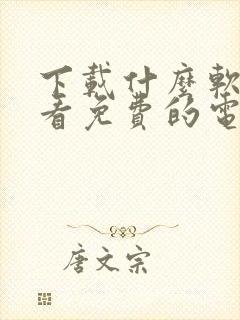 下載什麼軟
看免費的電
唐文宗